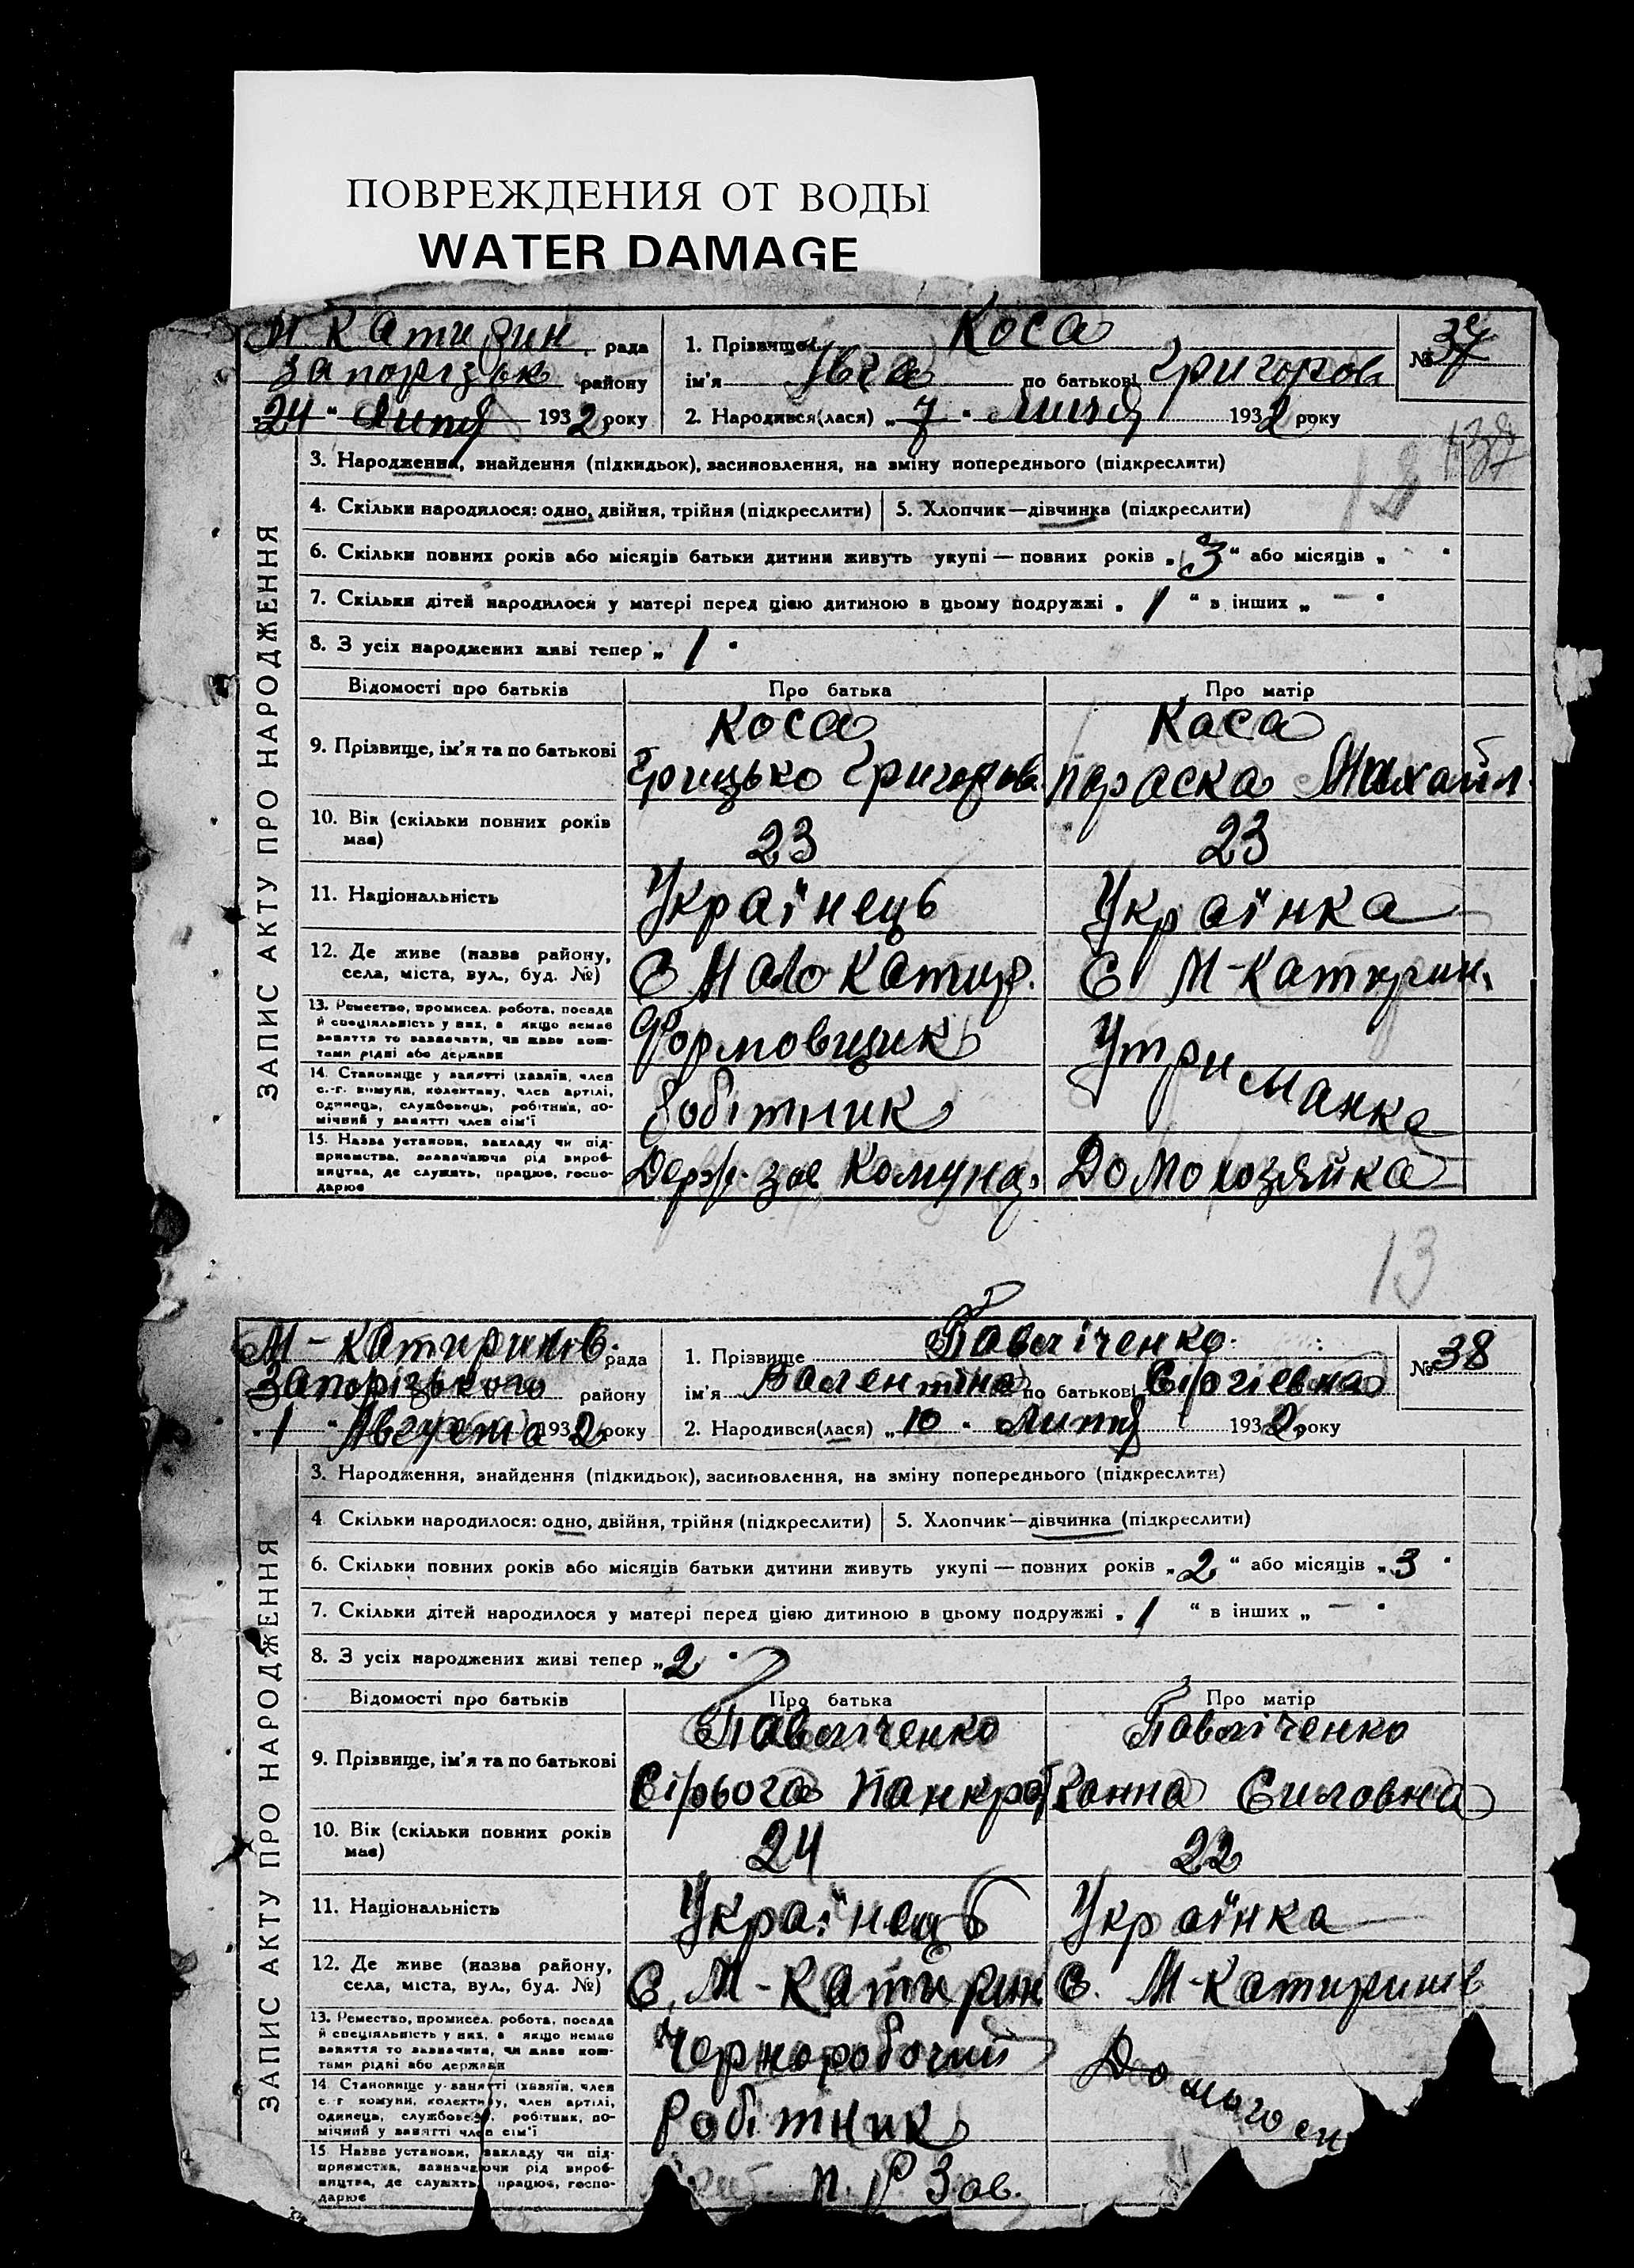 ПОВРЕЖДЕНИЯ ОТ ВОДЫ
WATER DAMAGE
М Катирин рада
Запорізьк району
24 " Липня 1932 року
1. Прізвище Коса
ім'я по батькові Григоров
2. Народився(лася) „ 7 " Липня 1932 року
№ 37
3. Народження, знайдення (підкидьок), засиновлення, на зміну попереднього (підкреслити)
12
4. Скільки народилося: одно, двійня, трійня (підкреслити)
5. Хлопчик—дівчинка (підкреслити)
6. Скільки повних років або місяців батьки дитини живуть укупі — повних років „ 3 " або місяців „ "
7. Скільки дітей народилося у матері перед цією дитиною в цьому подружжі „ 1 " в інших „ — "
8. З усіх народжених живі тепер „ 1 "
ЗАПИС АКТУ ПРО НАРОДЖЕННЯ
Відомості про батьків
Про батька
Про матір
9. Прізвище, ім'я та по батькові
Коса
Грицько Григоров.
Каса
Параска Михайл.
10. Вік (скільки повних років має)
23
23
11. Національність
Українець
Українка
12. Де живе (назва району, села, міста, вул., буд. №)
С Мало Катир.
С М-Катирин.
13. Ремество, промисел, робота, посада й спеціяльність у них, а якщо немає заняття то зазначити, чи живе коштами рідні або держави
Формовщик
Утриманка
14. Становище у занятті (хазяїн, член с.-г. комуни, колективу, член артілі, одинець, службовець, робітник, помічний у занятті член сім'ї
Робітник
15. Назва установи, закладу чи підприємства, зазначаючи рід виробництва, де служить, працює, господарює
Держ. зав Комунар.
Домохозяйка
13
М-Катиринів. рада
Запорізького району
1 " Августа 1932 року
1. Прізвище Павліченко
ім'я Валентіна по батькові Сірогіевна
2. Народився(лася) „ 10 " Липня 1932 року
№ 38
3. Народження, знайдення (підкидьок), засиновлення, на зміну попереднього (підкреслити)
4 Скільки народилося: одно, двійня, трійня (підкреслити)
5. Хлопчик—дівчинка (підкреслити)
6. Скільки повних років або місяців батьки дитини живуть укупі — повних років „ 2 " або місяців „ 3 "
7. Скільки дітей народилося у матері перед цією дитиною в цьому подружжі „ 1 " в інших „ — "
8. З усіх народжених живі тепер „ 2 "
ЗАПИС АКТУ ПРО НАРОДЖЕННЯ
Відомості про батьків
Про батька
Про матір
9. Прізвище, ім'я та по батькові
Павліченко
Сірьога Панкрат
Павліченко
Ганна Силовна
10. Вік (скільки повних років має)
24
22
11. Національність
Українець
Українка
12. Де живе (назва району, села, міста, вул., буд. №)
С. М-Катирин
С. М-Катиринів
13. Ремество, промисел, робота, посада й спеціяльність у них, а якщо немає заняття то зазначити, чи живе коштами рідні або держави
Черноробочий
14 Становище у занятті (хазяїн, член с.-г комуни, колективу, член артілі, одинець, службовець, робітник, помічний у занятті член сім'ї
Робітник
15 Назва установи, закладу чи підприємства, зазначаючи рід виробництва, де служить, працює, господарює
П. Р. Зав.